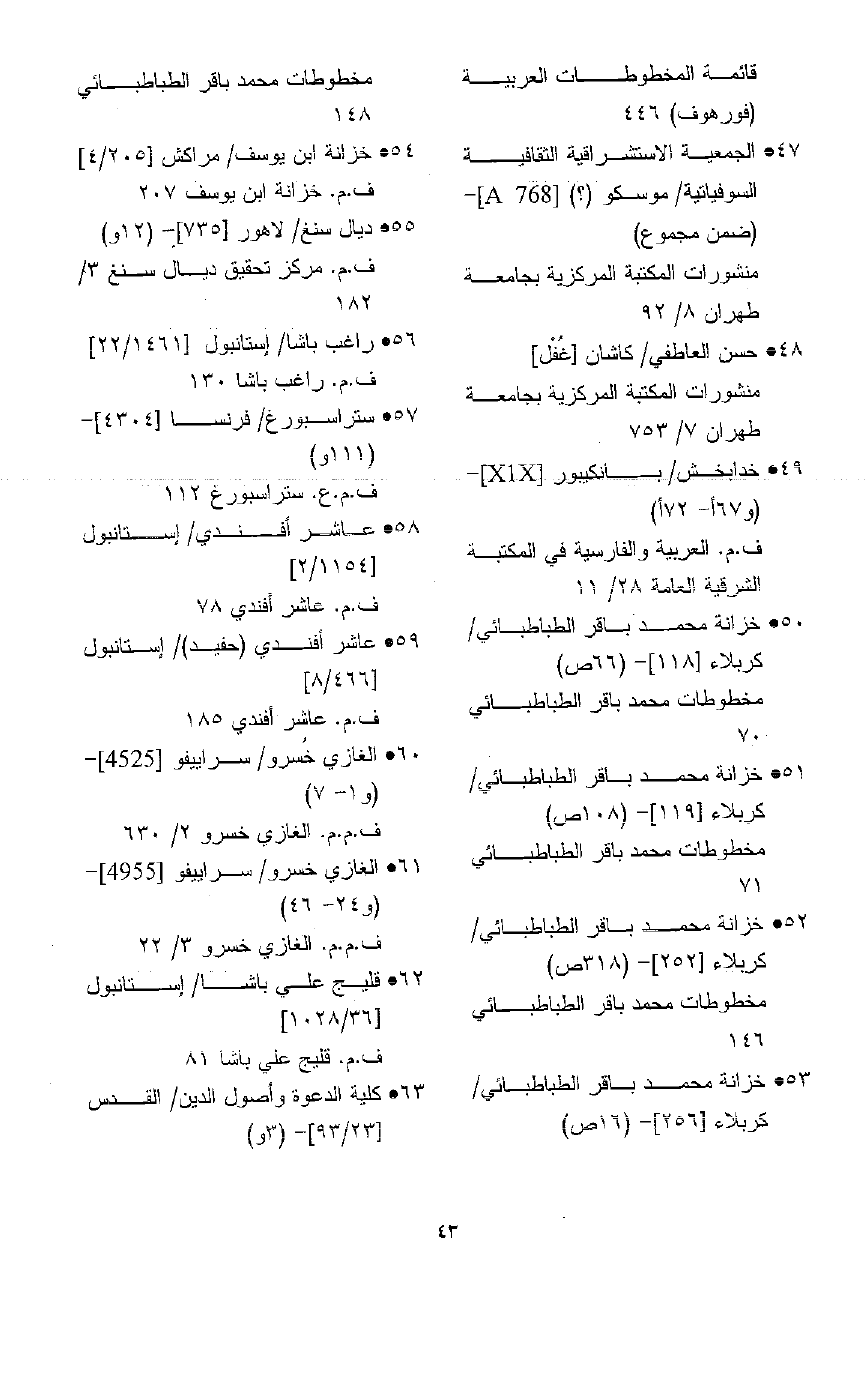 قائمة المخطوطات العربية
(فورهوف) ٤٤٦
٤٧• الجمعية الاستشراقية الثقافية
السوفياتية/ موسكو (؟) [A 768]–
(ضمن مجموع)
منشورات المكتبة المركزية بجامعة
طهران ٨/ ٩٢
٤٨• حسن العاطفي/ كاشان [غُفْل]
منشورات المكتبة المركزية بجامعة
طهران ٧/ ٧٥٣
٤٩• خدابخش/ بانكيبور [X1X]–
(و٦٧أ– ٧٢أ)
ف.م. العربية والفارسية في المكتبة
الشرقية العامة ٢٨/ ١١
٥٠• خزانة محمد باقر الطباطبائي/
كربلاء [١١٨]– (٦٦ص)
مخطوطات محمد باقر الطباطبائي
٧٠
٥١• خزانة محمد باقر الطباطبائي/
كربلاء [١١٩]– (١٠٨ص)
مخطوطات محمد باقر الطباطبائي
٧١
٥٢• خزانة محمد باقر الطباطبائي/
كربلاء [٢٥٢]– (٣١٨ص)
مخطوطات محمد باقر الطباطبائي
١٤٦
٥٣• خزانة محمد باقر الطباطبائي/
كربلاء [٢٥٦]– (١٦ص)
مخطوطات محمد باقر الطباطبائي
١٤٨
٥٤• خزانة ابن يوسف/ مراكش [٤/٢٠٥]
ف.م. خزانة ابن يوسف ٢٠٧
٥٥• ديال سنغ/ لاهور [٧٣٥]– (١٢و)
ف.م. مركز تحقيق ديال سنغ ٣/
١٨٢
٥٦• راغب باشا/ إستانبول [٢٢/١٤٦١]
ف.م. راغب باشا ١٣٠
٥٧• ستراسبورغ/ فرنسا [٤٣٠٤]–
(١١١و)
ف.م.ع. ستراسبورغ ١١٢
٥٨• عاشر أفندي/ إستانبول
[٢/١١٥٤]
ف.م. عاشر أفندي ٧٨
٥٩• عاشر أفندي (حفيد)/ إستانبول
[٨/٤٦٦]
ف.م. عاشر أفندي ١٨٥
٦٠• الغازي خُسرو/ سراييفو [4525]–
(و١– ٧)
ف.م.م. الغازي خسرو ٢/ ٦٣٠
٦١• الغازي خسرو/ سراييفو [4955]–
(و٢٤– ٤٦)
ف.م.م. الغازي خسرو ٣/ ٢٢
٦٢• قليج علي باشا/ إستانبول
[١٠٢٨/٣٦]
ف.م. قليج علي باشا ٨١
٦٣• كلية الدعوة وأصول الدين/ القدس
[٩٣/٢٣]– (٣و)
٤٣